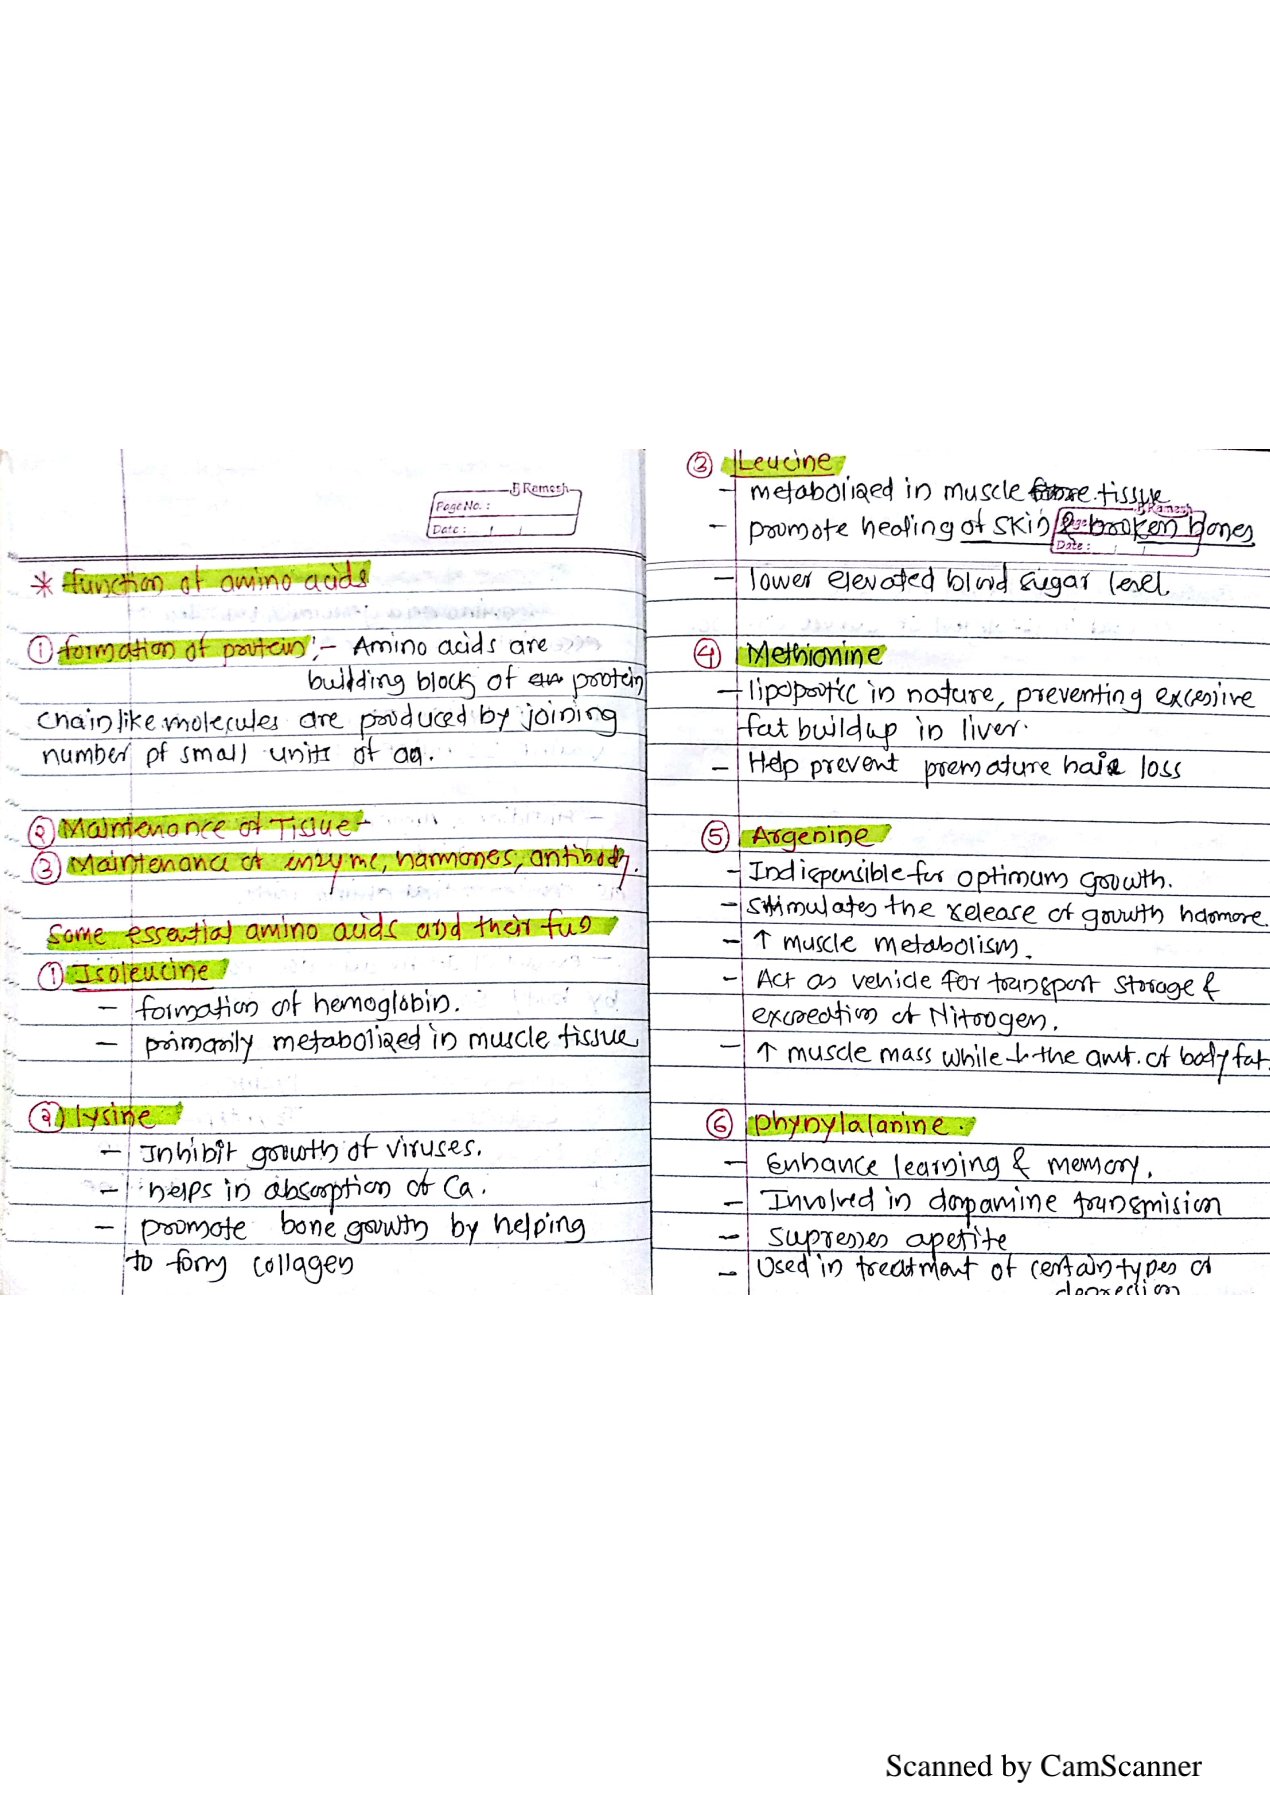 Ramesh
Page No. :
Date : / /
* function of amino acids
① formation of protein :- Amino acids are
building block of protein
chain like molecules are produced by joining
number of small units of aa.
② Maintenance of Tissue -
③ Maintenance of enzyme, harmones, antibody.
Some essential amino acids and their fun
① Isoleucine
- formation of hemoglobin.
- primarily metabolized in muscle tissue
② lysine
- Inhibit growth of viruses.
- helps in absorption of Ca.
- promote bone growth by helping
to form collagen
③ Leucine
- metabolized in muscle tissue
- promote healing of skin & broken bones
Ramesh
Date : / /
- lower elevated blood sugar level.
④ Methionine
- lipoprotic in nature, preventing excessive
fat buildup in liver.
- Help prevent premature hair loss
⑤ Argenine
- Indispensible for optimum growth.
- stimulates the release of growth hormore.
- ↑ muscle metabolism.
- Act as vehicle for transport storage &
excreation of Nitrogen.
- ↑ muscle mass while ↓ the amt. of body fat.
⑥ phynylalanine.
- Enhance learning & memory.
- Involved in dopamine transmision
- supresses apetite
- Used in treatment of certain types of
depression
Scanned by CamScanner